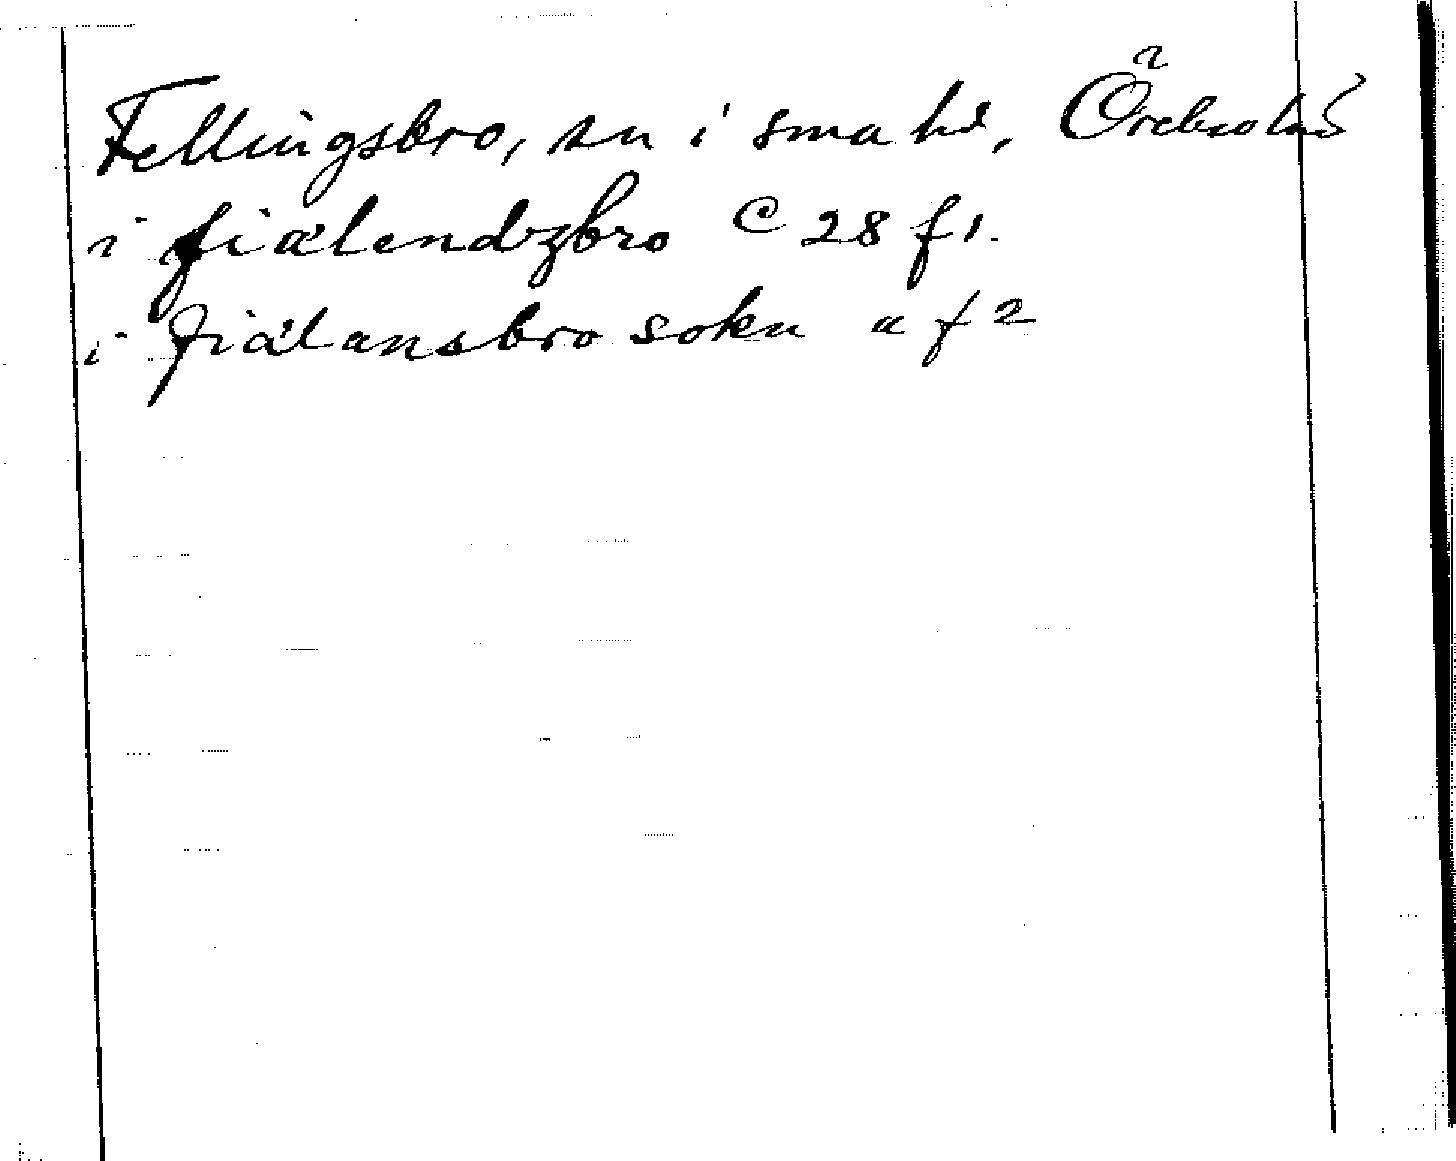 Fellingsbro, sn i sma hd, Örebro län
i fiælendzbro C 28 f 1.
i fiælansbro sokn " f 2